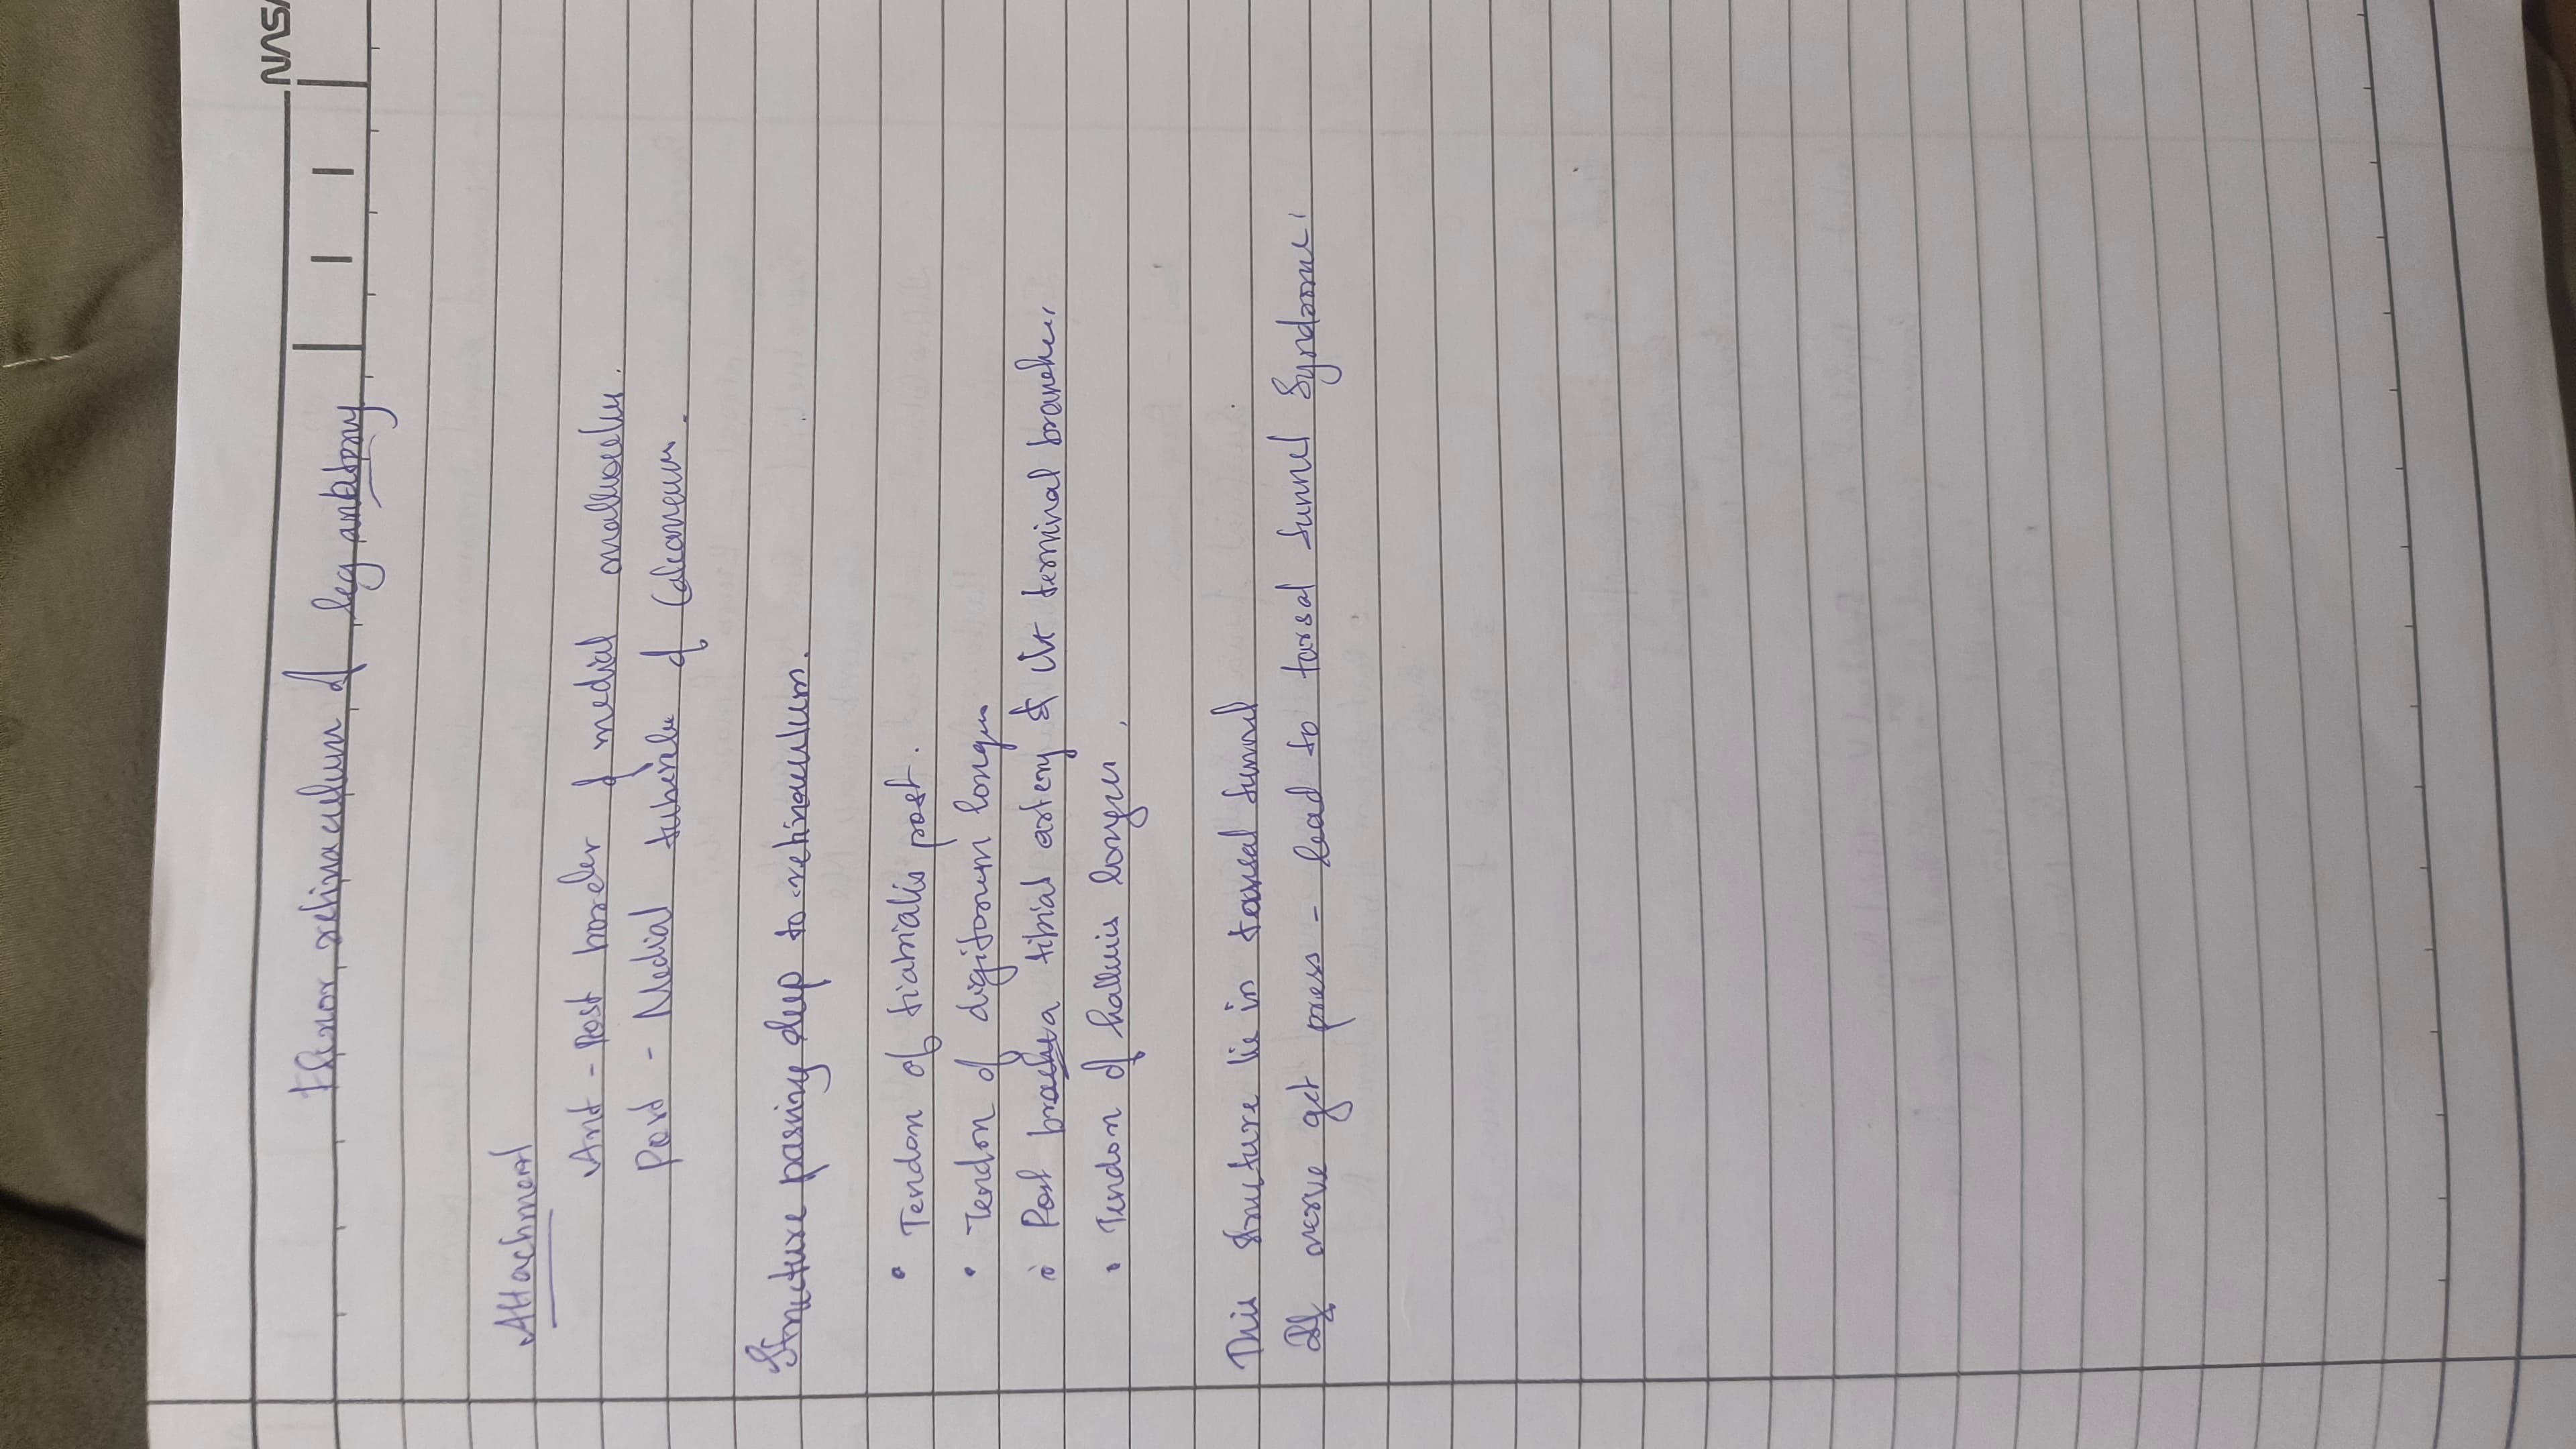 NSN
Flexor retinaculum of leg anatomy
Attachment
Ant - Post border of medial malleolus.
Post - Medial tubercle of Calcaneum.
Structure passing deep to retinaculum.
• Tendon of tibialis post.
• Tendon of digitorum longus
• Post tibial artery & its terminal branches,
• Tendon of hallucis longus.
This structure lie in tarsal tunnel
If nerve get press - lead to tarsal tunnel Syndrome.